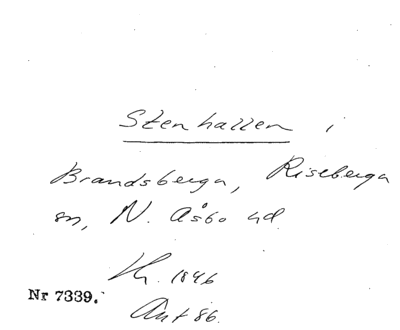 Stenhallen i
Brandsberga, Riseberga
sn, N. Åsbo hd.
Th. 1846
Nr 7339.
Ant 86.